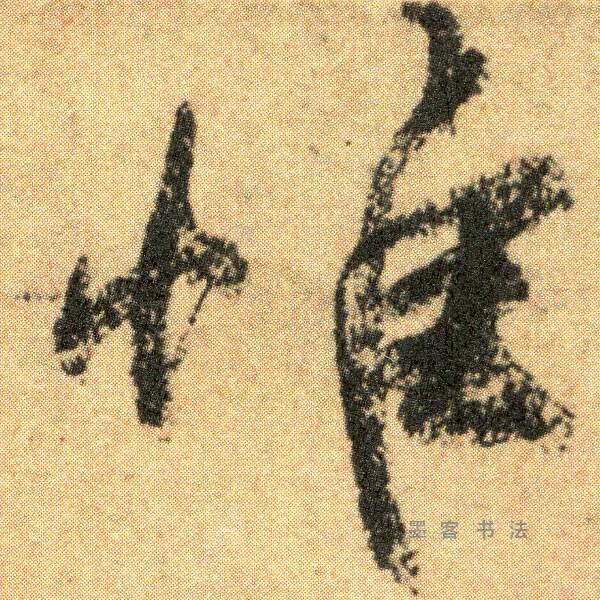 惟
墨客书法